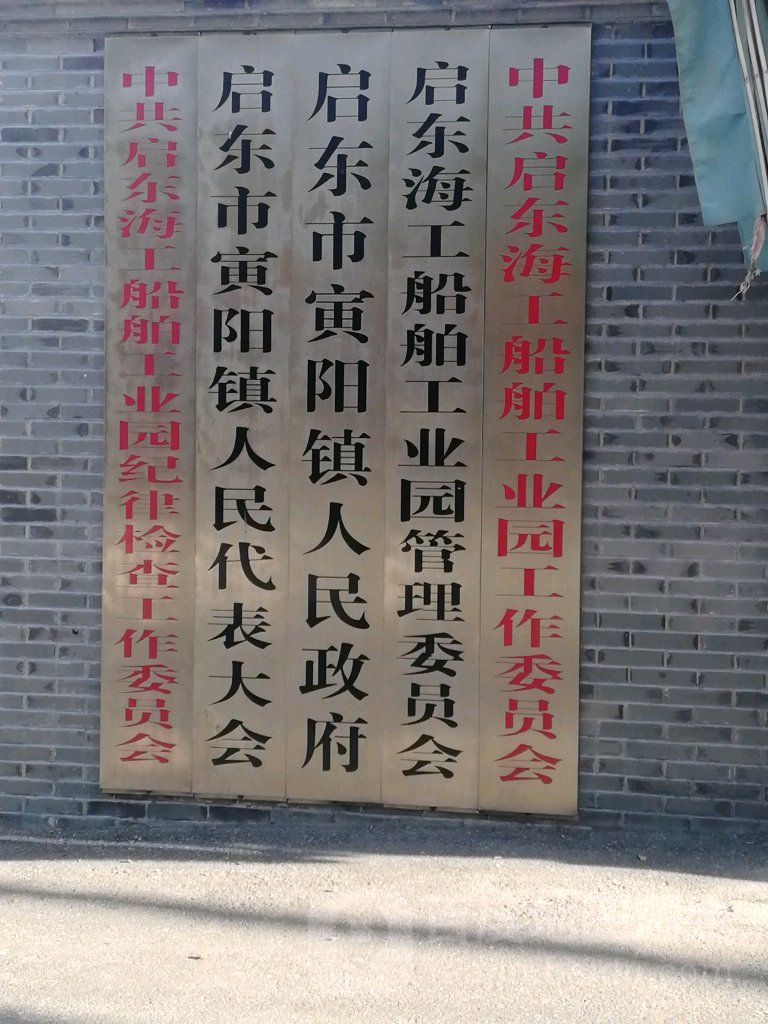 中共启东海工船舶工业园工作委员会
启东海工船舶工业园管理委员会
启东市寅阳镇人民政府
启东市寅阳镇人民代表大会
中共启东海工船舶工业园纪律检查工作委员会